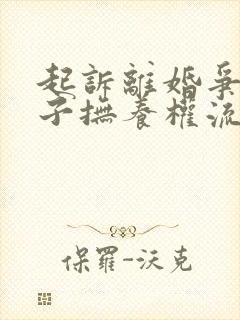 起訴離婚爭
子撫養權流
保羅-沃克